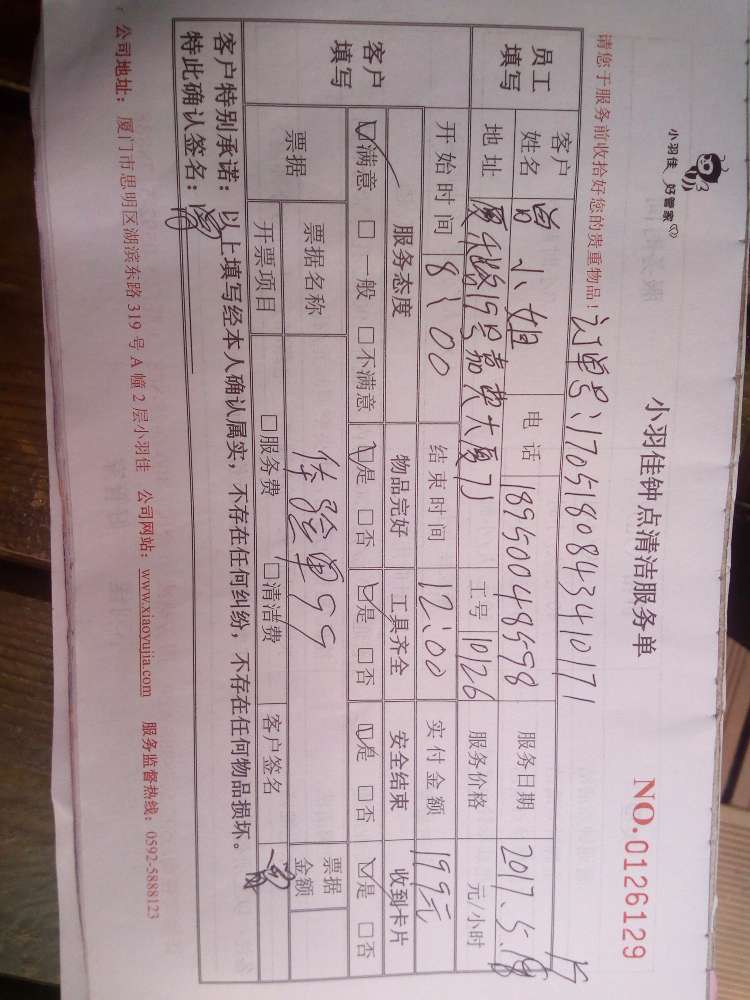 小羽佳 好管家
小羽佳钟点清洁服务单
NO.0126129
请您于服务前收拾好您的贵重物品! 订单号:170518084340171
员工填写 客户姓名 曾小姐 电话 18950048558 服务日期 2017.5.18
地址 19号嘉 大厦 工号 1026 服务价格 元/小时
开始时间 8:00 结束时间 12:00 实付金额 199元
客户填写 服务态度 物品完好 工具齐全 安全结束 收到卡片
☑满意 □一般 □不满意 ☑是 □否 ☑是 □否 ☑是 □否 ☑是 □否
票据 票据名称 体验单99 票据金额
开票项目 □服务费 □清洁费 客户签名 曾
客户特别承诺:以上填写经本人确认属实,不存在任何纠纷,不存在任何物品损坏。
特此确认签名:曾
公司地址:厦门市思明区湖滨东路319号A幢2层小羽佳 公司网站:www.xiaoyujia.com 服务监督热线:0592-5888123